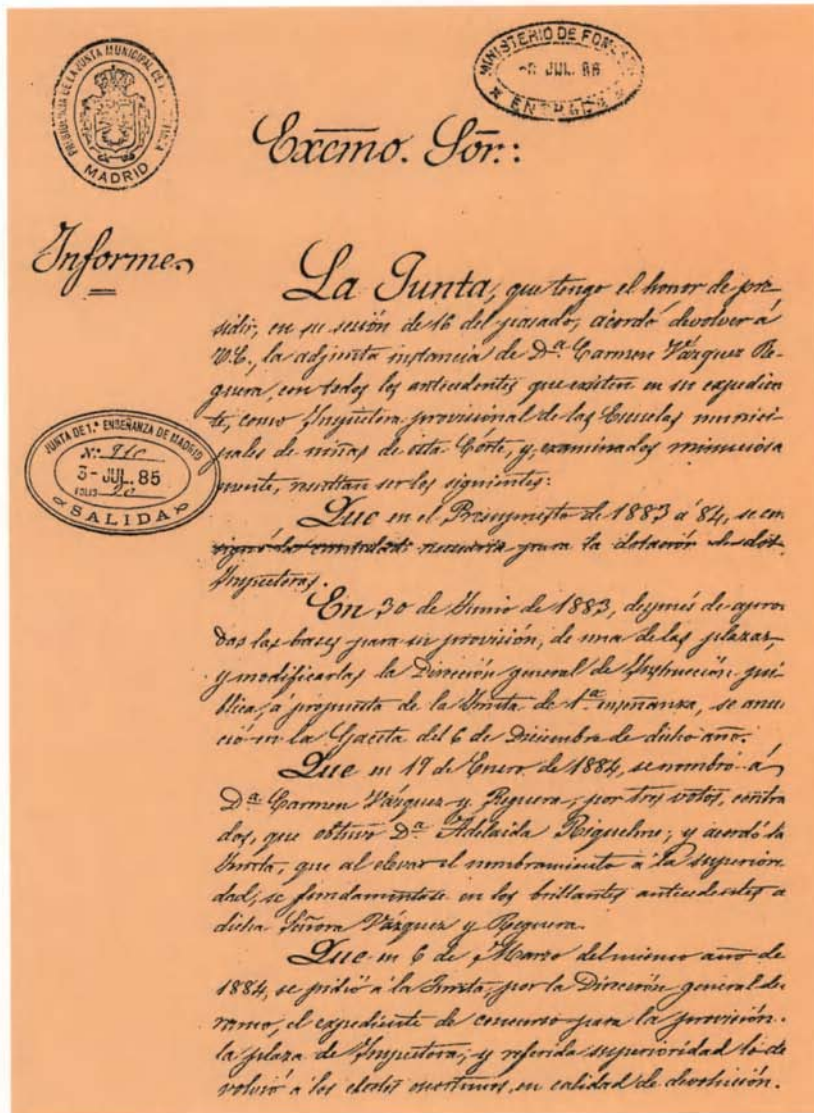 MINISTERIO DE FOMENTO
JUL. 86
ENTRADA
PRESIDENCIA DE LA JUNTA MUNICIPAL DE
MADRID
Excmo. Sor.:
Informe
La Junta, que tengo el honor de pre-
sidir, en su sesión de 16 del pasado, acordó devolver á
V.E., la adjunta instancia de Dª Carmen Vázquez Re-
guera, con todos los antecedentes que existen en su expedien
te, como Inspectora provisional de las Escuelas munici-
pales de niñas de esta Corte, y, examinados minuciosa
mente, resultan ser los siguientes:
JUNTA DE 1.ª ENSEÑANZA DE MADRID
Nº 910
3-JUL. 85
FOLIO 20
SALIDA
Que en el Presupuesto de 1883 á 84, se con
signó la cantidad necesaria para la dotación de dos
Inspectoras.
En 30 de Junio de 1883, después de apro
das las bases para su provisión, de una de las plazas,
y modificarlas la Dirección general de Instrucción pú-
blica, á propuesta de la Junta de 1ª enseñanza, se anun
ció en la Gaceta del 6 de Diciembre de dicho año.
Que en 17 de Enero de 1884, se nombró á
Dª Carmen Vázquez y Reguera, por tres votos, contra
dos, que obtuvo Dª Adelaida; y acordó la
Junta, que al elevar el nombramiento á la superiori
dad, se fundamentase en los brillantes antecedentes
dicha Señora Vázquez y Reguera.
Que en 6 de Marzo del mismo año de
1884, se pidió á la Junta, por la Dirección general del
ramo, el expediente de concurso para la provisión
la plaza de Inspectora; y referida superioridad lo de
volvió á los efectos, en calidad de devolución.